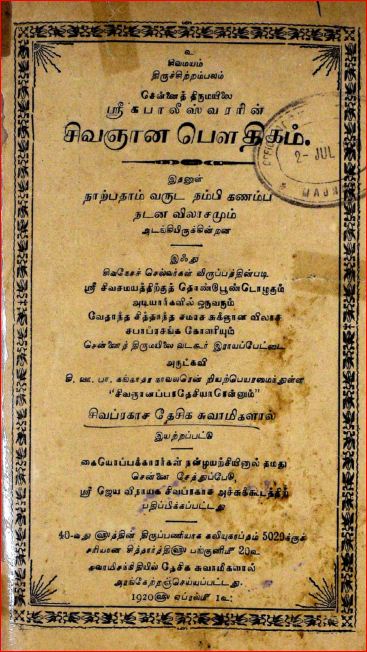 உ
சிவமயம்
திருச்சிற்றம்பலம்
சென்னைத் திருமயிலை
ஸ்ரீ கபாலீஸ்வரரின்
சிவஞான பௌதிகம்.
இதனுள்
நாற்பதாம் வருட நம்பி கணம்ப
நடன விலாசமும்
அடங்கியிருக்கின்றன
இஃது
சிவநேசச் செல்வர்கள் விருப்பத்தின்படி
ஸ்ரீ சிவசமயத்திற்குத் தொண்டுபூண்டொழுகும்
அடியார்களில் ஒருவரும்
வேதாந்த சித்தாந்த சமரச சுக்ஞான விலாச
சபாப்ரசங்க கோளரியும்
சென்னைத் திருமயிலை வடகூர் இராயப்பேட்டை
அருட்கவி
கி. வா. பா. கங்காதர நாவலரென் றியற்பெயரமைந்துள்ள
"சிவஞானப்பாதேசியாரென்னும்"
சிவப்ரகாச தேசிக சுவாமிகளால்
இயற்றப்பட்டு
கையொப்பக்காரர்கள் நன்முயற்சியினால் தமது
சென்னை சேத்துப்பேடு,
ஸ்ரீ ஜெய விநாயக சிவப்ரகாச அச்சுக்கூடத்திற்
பதிப்பிக்கப்பட்டது
40-வது ௵த்தின் திருப்பணியாக கலியுகாப்தம் 5020க்குச்
சரியான சித்தார்த்தி௵ பங்குனி௴ 20௳
சுவாமிசந்நிதியில் தேசிக சுவாமிகளால்
அரங்கேற்றஞ்செய்யப்பட்டது.
1920௵ ஏப்ரல்௴ 1௳
2- JUL